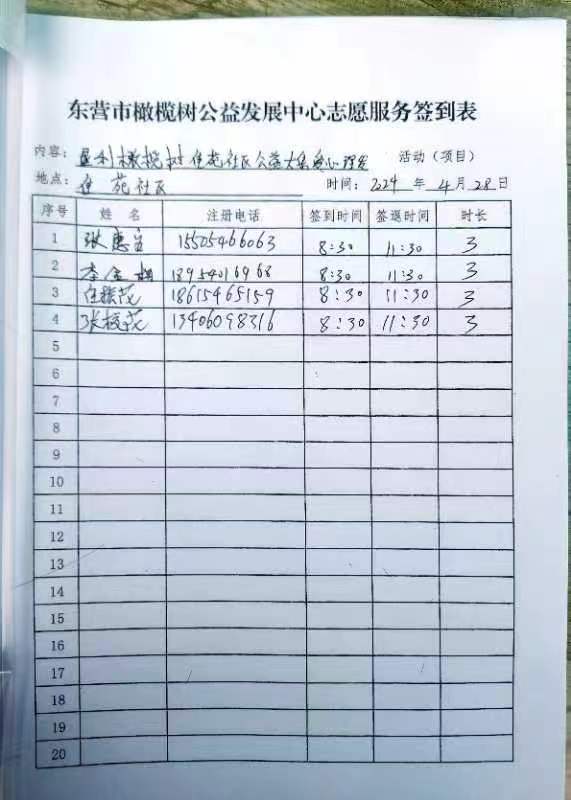 东营市橄榄树公益发展中心志愿服务签到表
内容: 垦利橄榄树佳苑社区公益大集爱心理发 活动（项目）
地点: 佳苑社区 时间: 2024 年 4 月 28 日
序号 姓 名 注册电话 签到时间 签退时间 时长
1 张惠 15505466063 8:30 11:30 3
2 李金 18954016968 8:30 11:30 3
3 任 茂 18615465159 8:30 11:30 3
4 张 茂 13406098316 8:30 11:30 3
5
6
7
8
9
10
11
12
13
14
15
16
17
18
19
20